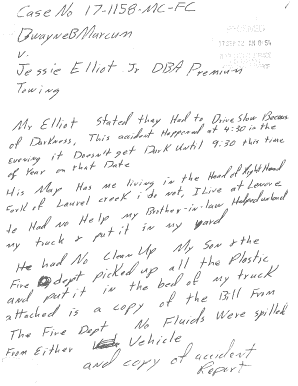 Case No 17-1158-MC-FC
Dwayne B Marcum
v.
Jessie Elliot Jr DBA Premium
Towing
Mr Elliot Stated they Had to Drive Slow Because
of Darkness, This accident Happened at 4:30 in the
Evening it Doesn't get Dark Until 9:30 this time
of Year on that Date
His Map Has me living in the Head of Right Hand
Fork of Laurel creek i do not, I Live at Lower
He Had No Help my Brother-in-law Helped unload
my truck & put it in my yard
He had No Clean Up My Son & the
Fire dept picked up all the Plastic
and put it in the bed of my truck
attached is a copy of the Bill From
The Fire Dept No Fluids Were spilled
From Either Vehicle
and copy of accident
Report